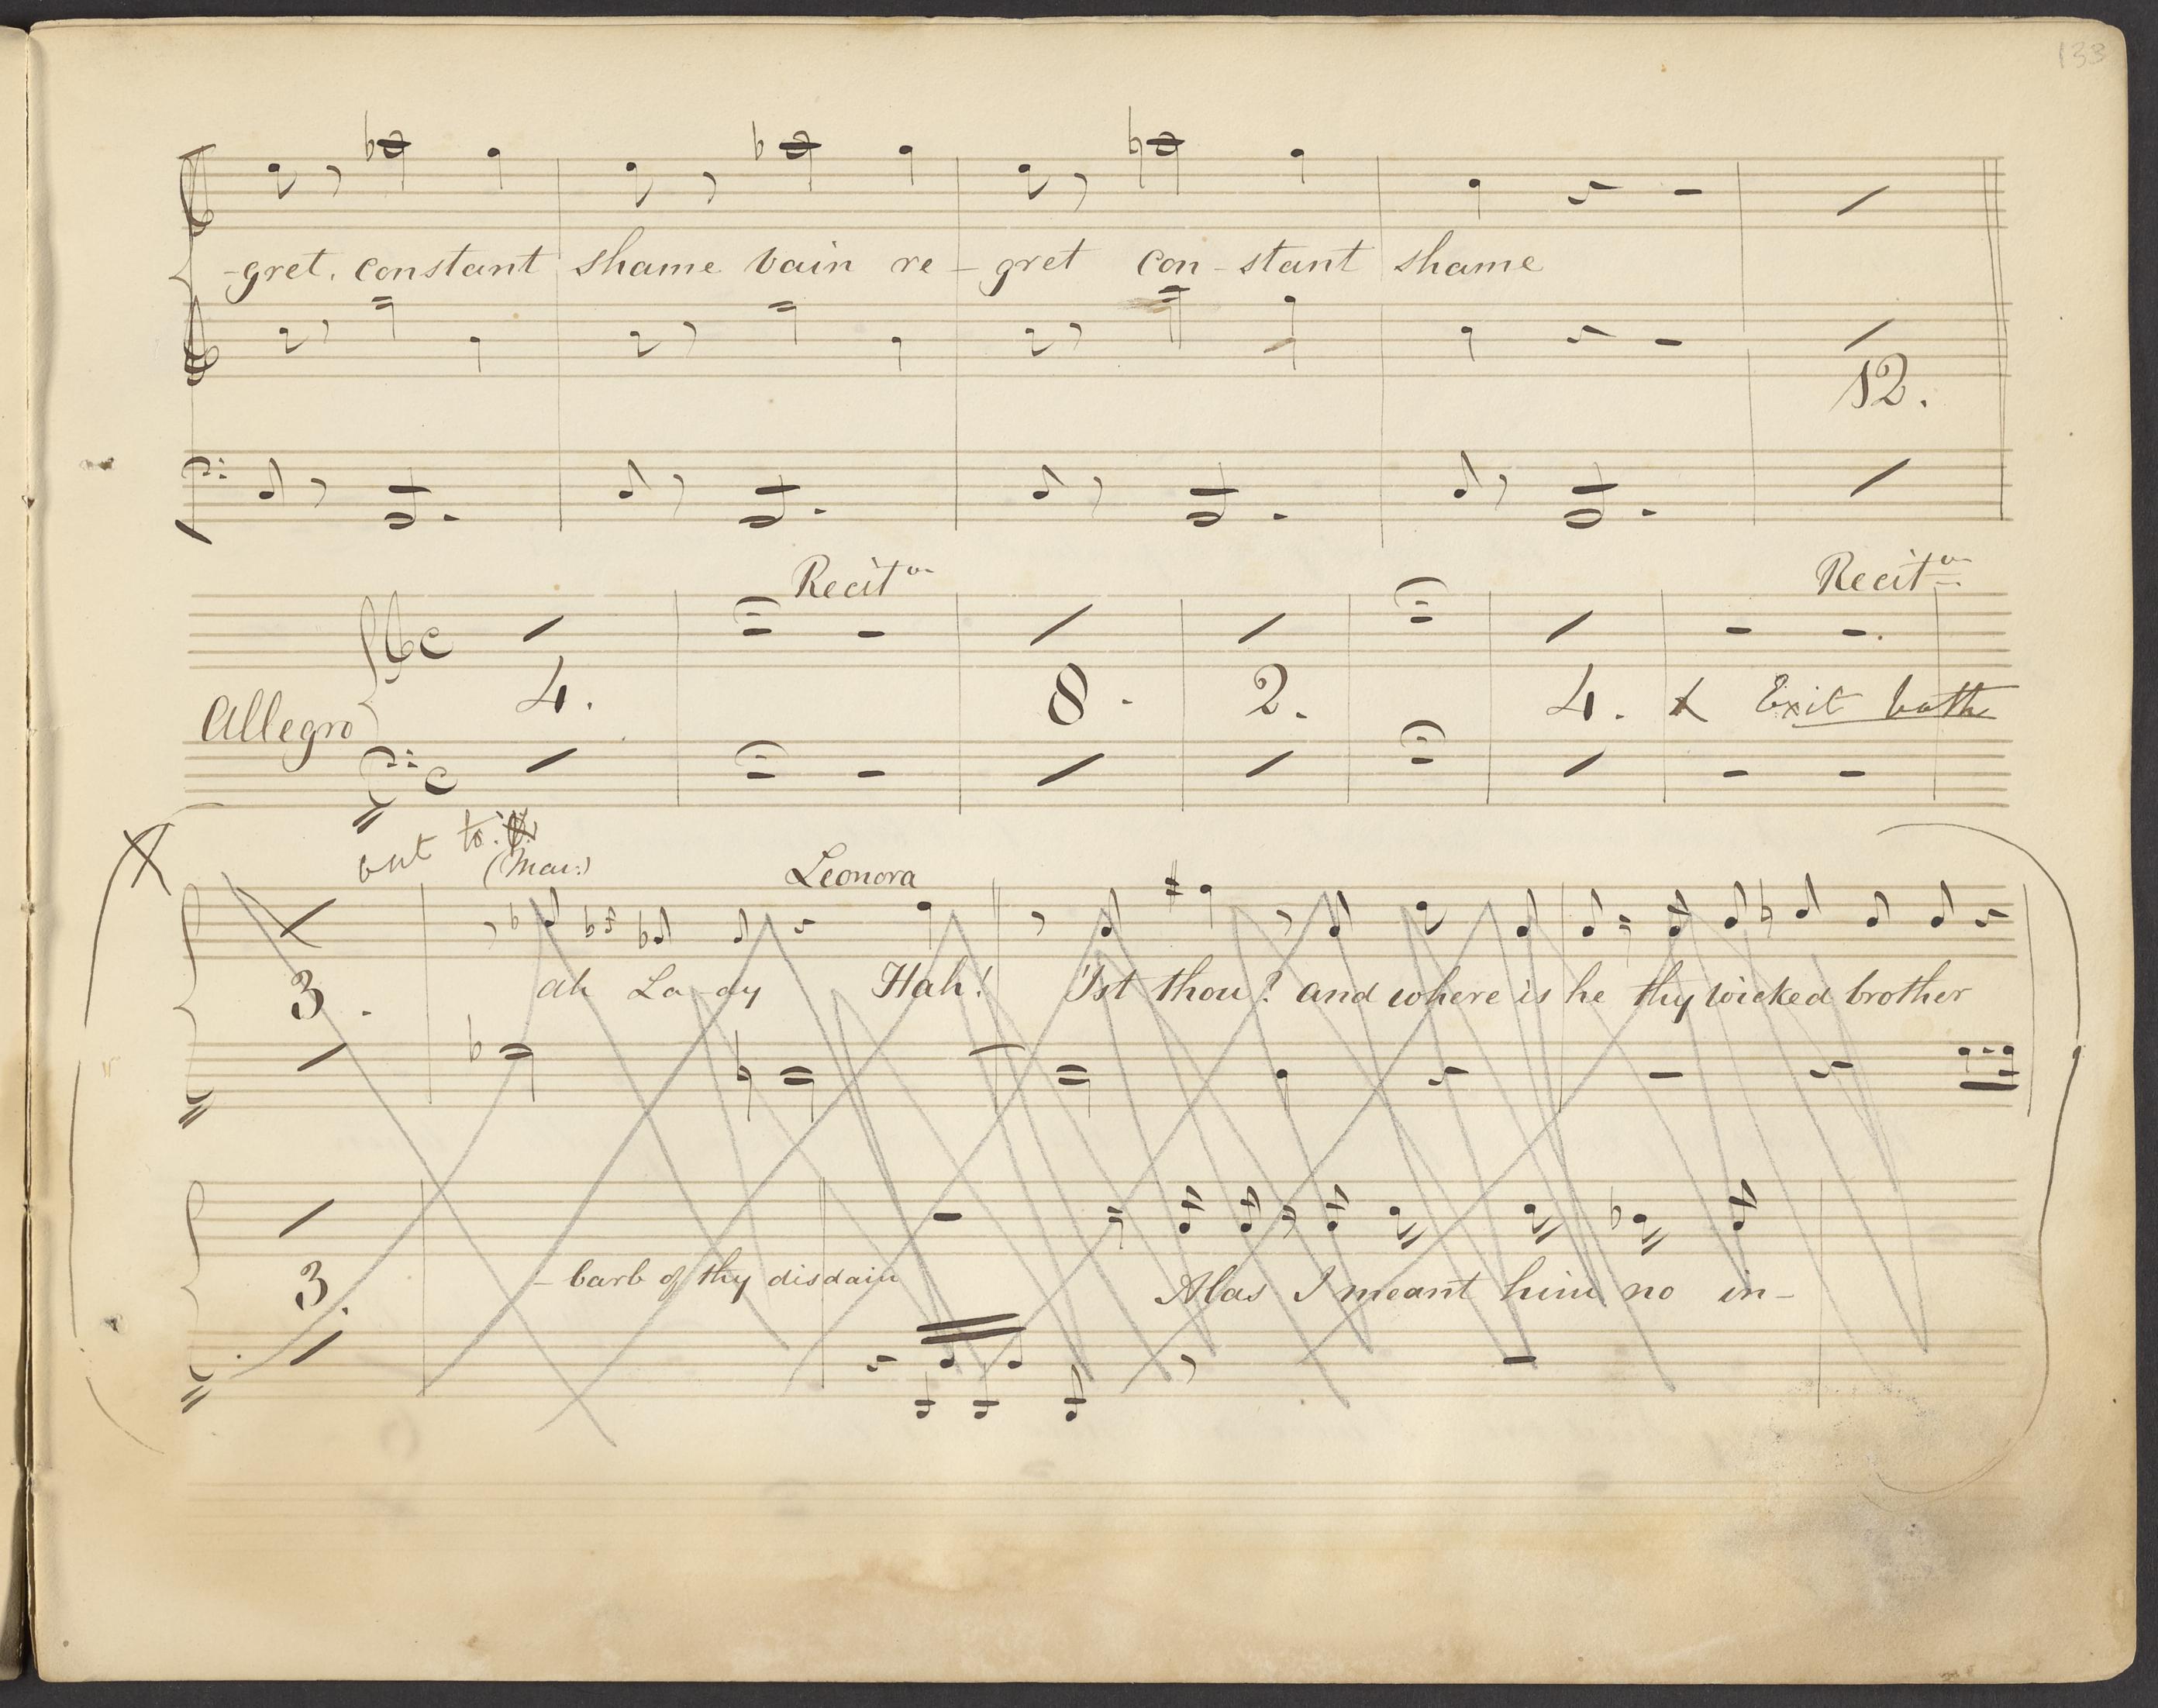 133
-gret. constant shame vain re-gret con-stant shame
12.
Recit
Recit
Allegro 4. 8. 2. 4. Exit both
out to
(Mar:) Leonora
3. ah La-dy Hah! 'Ist thou? and where is he thy wicked brother
3. -barb of thy disdain Alas I meant him no in-